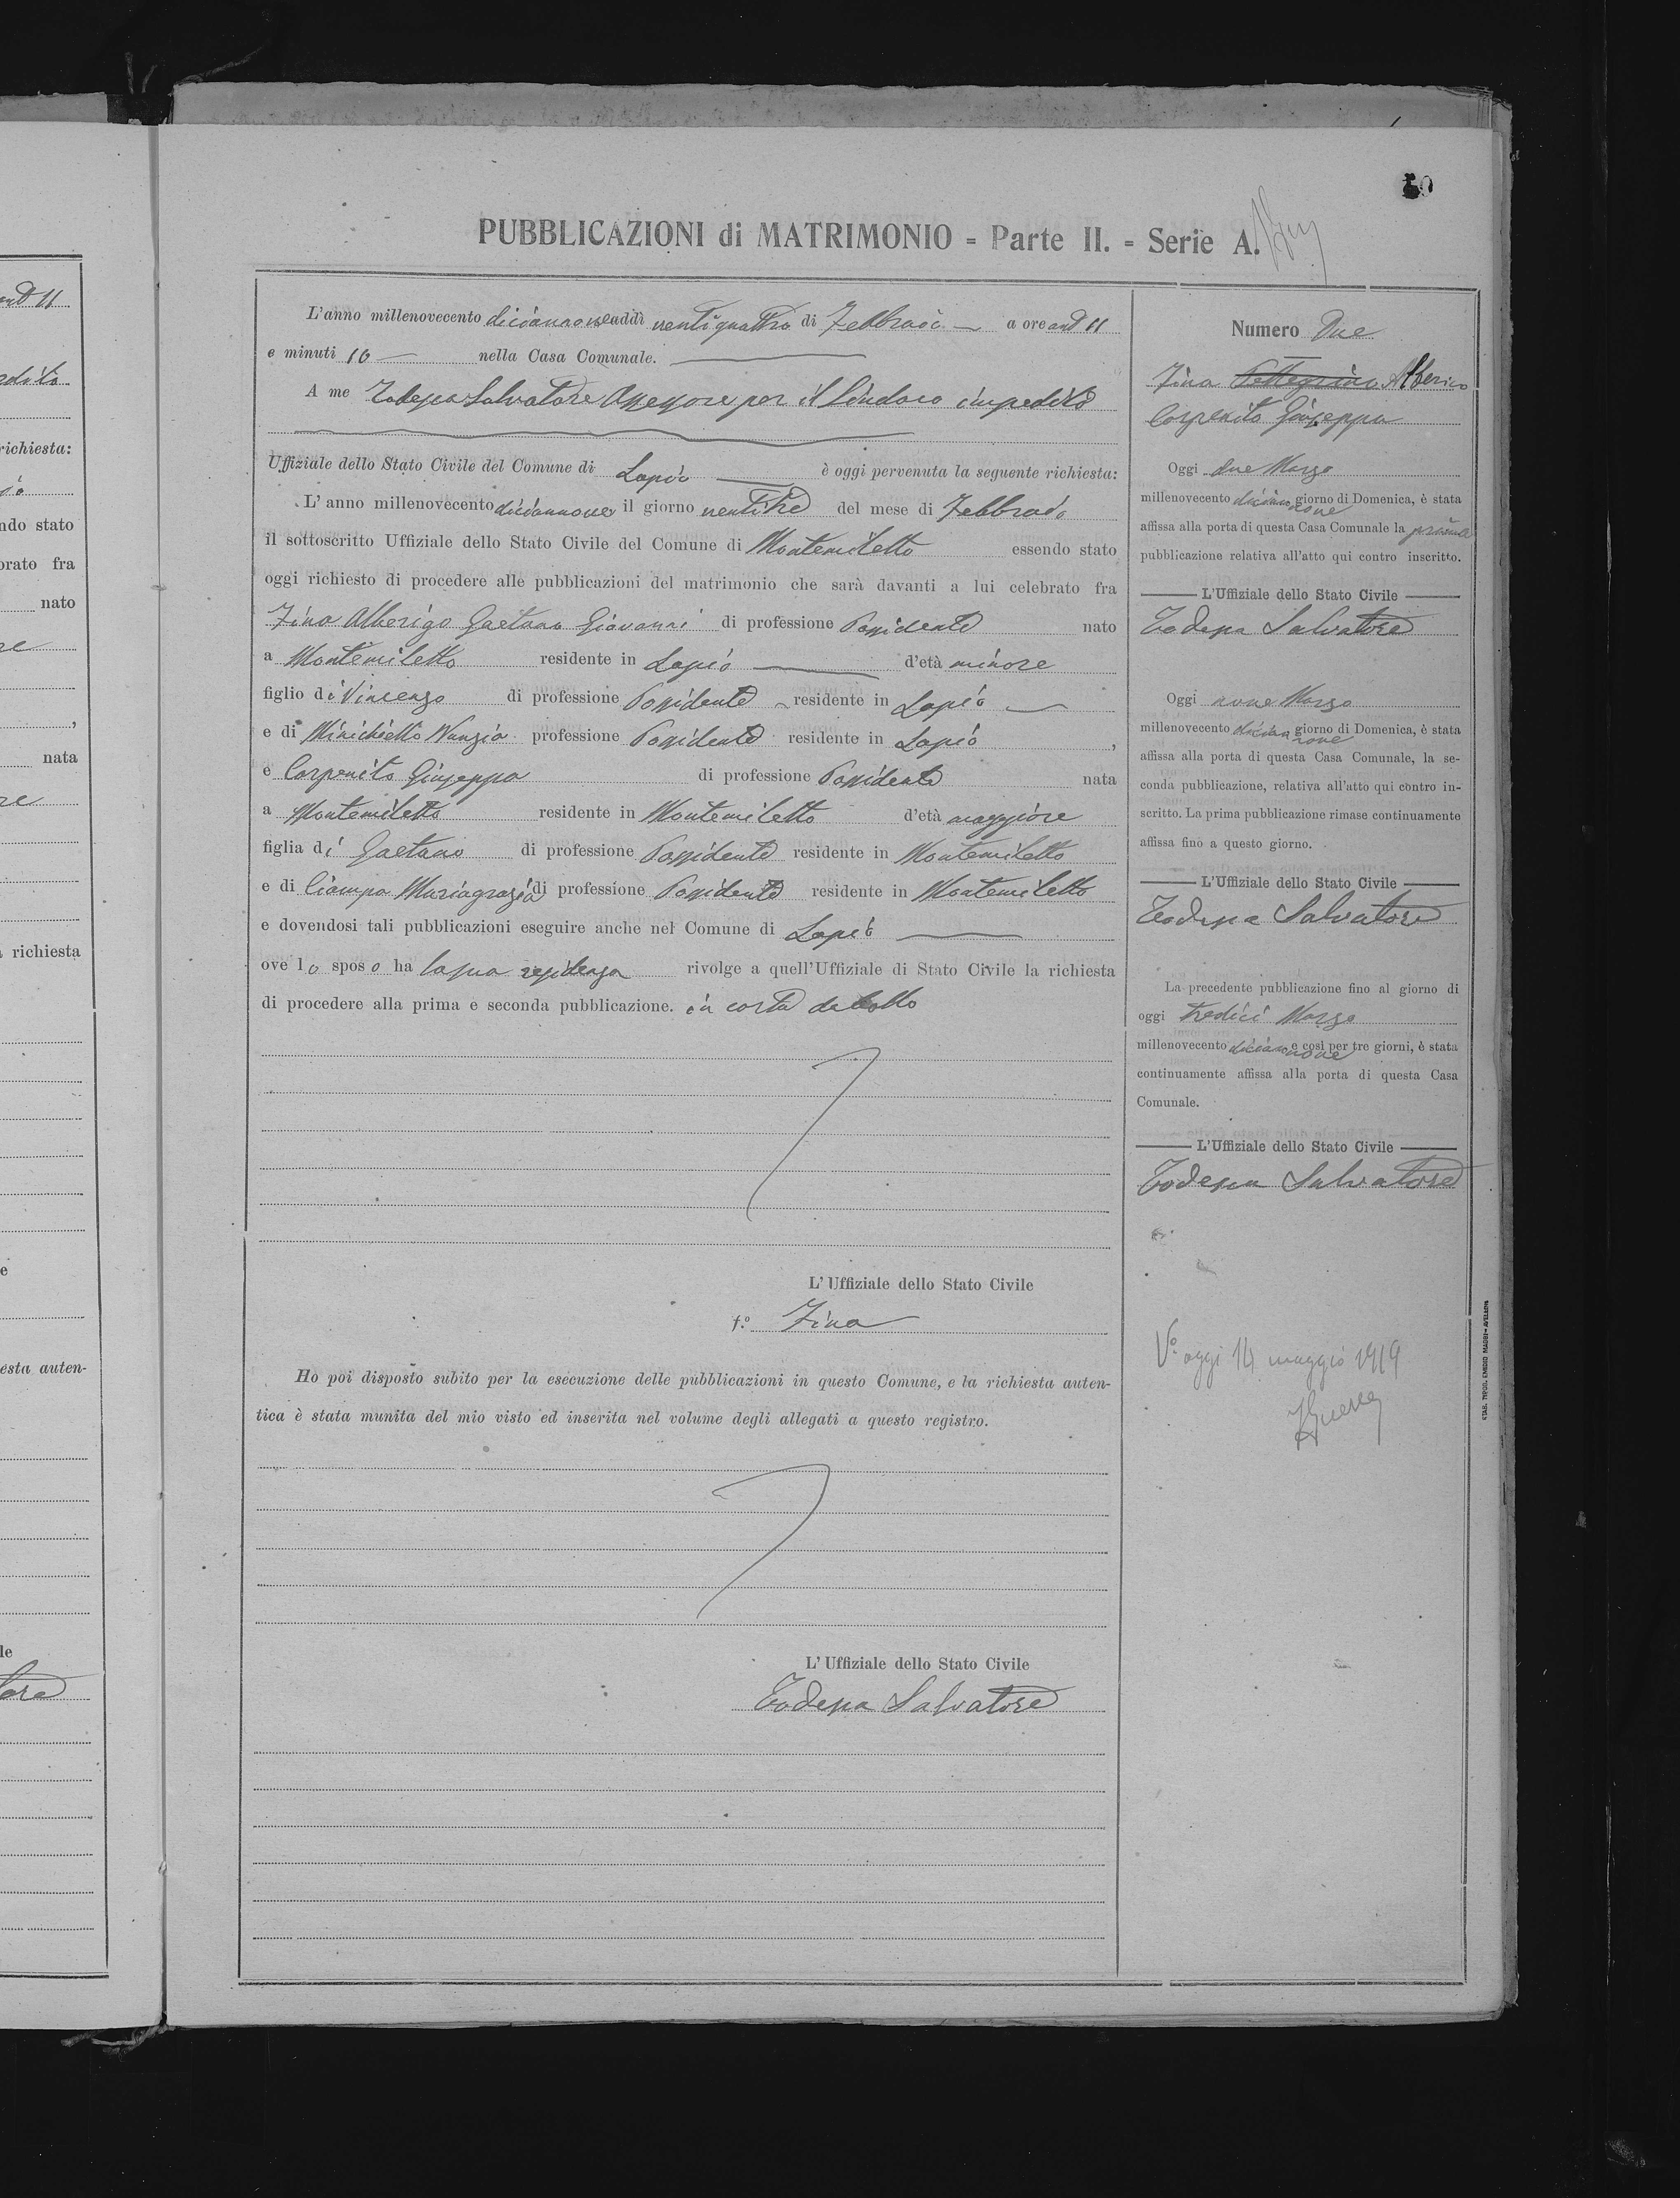 50
PUBBLICAZIONI di MATRIMONIO = Parte II. = Serie A.
L'anno millenovecento diciannove addì ventiquattro di Febbraio a ore ant 11
e minuti 10 nella Casa Comunale.
A me Todesca Salvatore Assessore per il Sindaco impedito
Uffiziale dello Stato Civile del Comune di Lapio è oggi pervenuta la seguente richiesta:
L'anno millenovecento diciannove il giorno ventitre del mese di Febbraio
il sottoscritto Uffiziale dello Stato Civile del Comune di Montemiletto essendo stato
oggi richiesto di procedere alle pubblicazioni del matrimonio che sarà davanti a lui celebrato fra
Fina Alberigo Gaetano Giovanni di professione Possidente nato
a Montemiletto residente in Lapio d'età minore
figlio di Vincenzo di professione Possidente residente in Lapio
e di Minichiello Nunzia professione Possidente residente in Lapio,
e Carpenito Giuseppa di professione Possidente nata
a Montemiletto residente in Montemiletto d'età maggiore
figlia di Gaetano di professione Possidente residente in Montemiletto
e di Ciampa Mariagrazia di professione Possidente residente in Montemiletto
e dovendosi tali pubblicazioni eseguire anche nel Comune di Lapio
ove lo sposo ha la sua residenza rivolge a quell'Uffiziale di Stato Civile la richiesta
di procedere alla prima e seconda pubblicazione. in carta da bollo
L'Uffiziale dello Stato Civile
f.º Fina
Ho poi disposto subito per la esecuzione delle pubblicazioni in questo Comune, e la richiesta auten-
tica è stata munita del mio visto ed inserita nel volume degli allegati a questo registro.
L'Uffiziale dello Stato Civile
Todesca Salvatore
Numero Due
Fina Pellegrino Alberico
Carpenito Giuseppa
Oggi due Marzo
millenovecento diciannove giorno di Domenica, è stata
affissa alla porta di questa Casa Comunale la prima
pubblicazione relativa all'atto qui contro inscritto.
L'Uffiziale dello Stato Civile
Todesca Salvatore
Oggi nove Marzo
millenovecento diciannove giorno di Domenica, è stata
affissa alla porta di questa Casa Comunale, la se-
conda pubblicazione, relativa all'atto qui contro in-
scritto. La prima pubblicazione rimase continuamente
affissa fino a questo giorno.
L'Uffiziale dello Stato Civile
Todesca Salvatore
La precedente pubblicazione fino al giorno di
oggi tredici Marzo
millenovecento diciannove e così per tre giorni, è stata
continuamente affissa alla porta di questa Casa
Comunale.
L'Uffiziale dello Stato Civile
Todesca Salvatore
Vº oggi 14 maggio 1919
ant 11
richiesta:
ndo stato
orato fra
nato
nata
richiesta
e
esta auten-
le